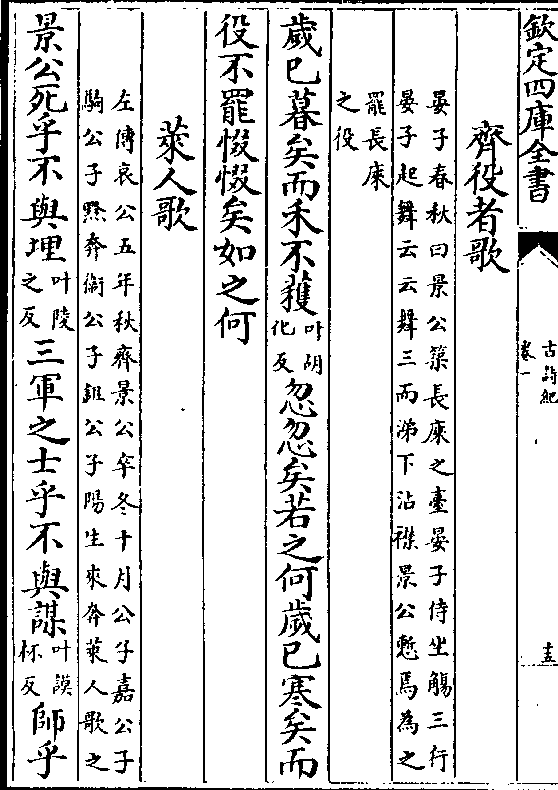 欽定四庫全書
古詩紀
卷一
十五
齊役者歌
晏子春秋曰景公築長庲之臺晏子侍坐觴三行
晏子起舞云云舞三而涕下沾襟景公慙焉為之
罷長庲
之役
歲已暮矣而禾不穫叶胡化反忽忽矣若之何歲已寒矣而
役不罷惙惙矣如之何
萊人歌
左傳哀公五年秋齊景公卒冬十月公子嘉公子
駒公子黔奔衛公子鉏公子陽生來奔萊人歌之
景公死乎不與埋叶陵之反三軍之士乎不與謀叶謨杯反師乎